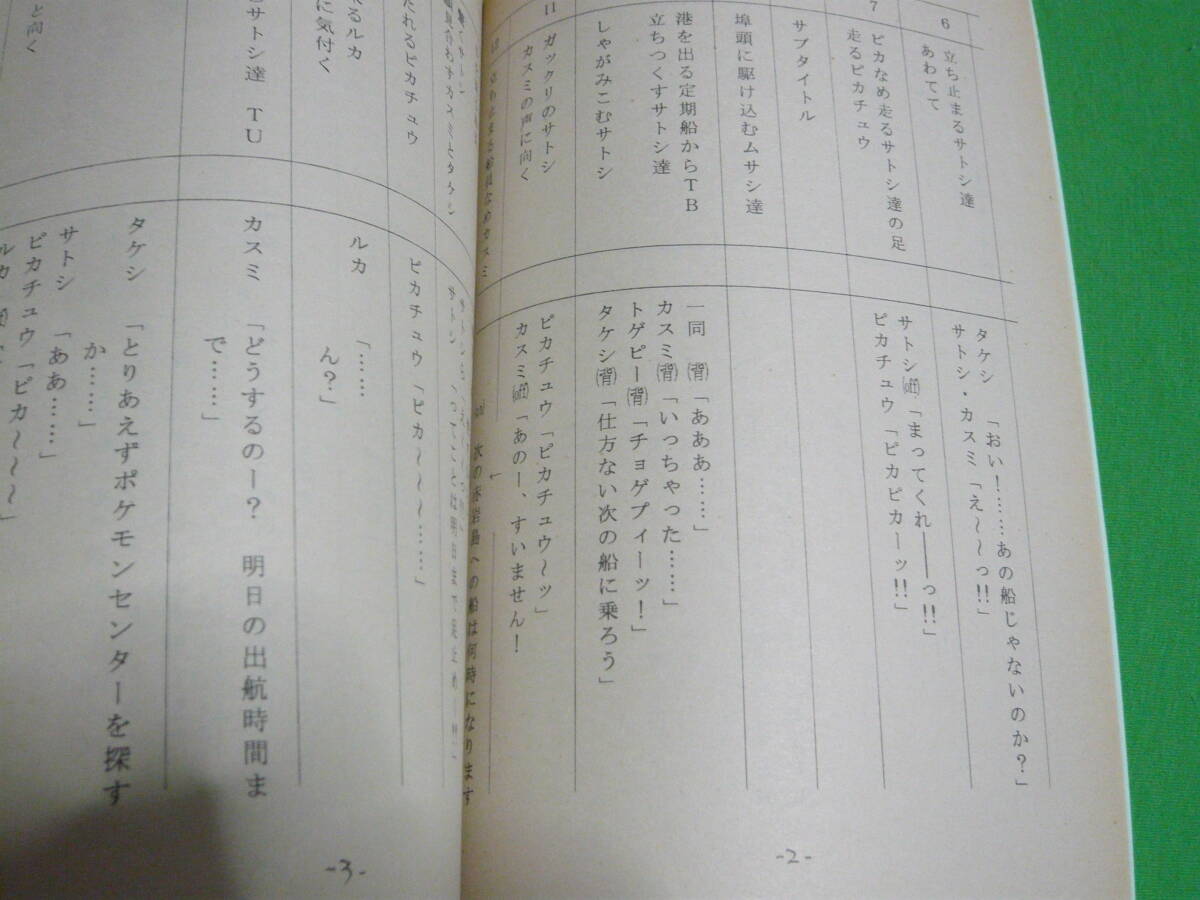 6
立ち止まるサトシ達
あわてて
タケシ 「おい!……あの船じゃないのか?」
サトシ・カスミ「え~~っ!!」
7
ピカなめ走るサトシ達の足
走るピカチュウ
サトシ(off)「まってくれ――っ!!」
ピカチュウ「ピカピカーッ!!」
サブタイトル
埠頭に駆け込むムサシ達
港を出る定期船からTB
立ちつくすサトシ達
一同 (背)「あああ……」
カスミ(背)「いっちゃった……」
トゲピー(背)「チョゲプィーッ!」
タケシ(背)「仕方ない次の船に乗ろう」
しゃがみこむサトシ
11
ガックリのサトシ
カスミの声に向く
ピカチュウ「ピカチュウ~ッ」
カスミ(off)「あのー、すいません!
-2-
たれるピカチュウ
ピカチュウ「ピカ~~~……」
来るルカ
に気付く
ルカ 「……
ん?」
サトシ達 TU
カスミ 「どうするのー? 明日の出航時間ま
で……」
タケシ 「とりあえずポケモンセンターを探す
か……」
サトシ 「ああ……」
ピカチュウ「ピカ~~~」
と向く
-3-